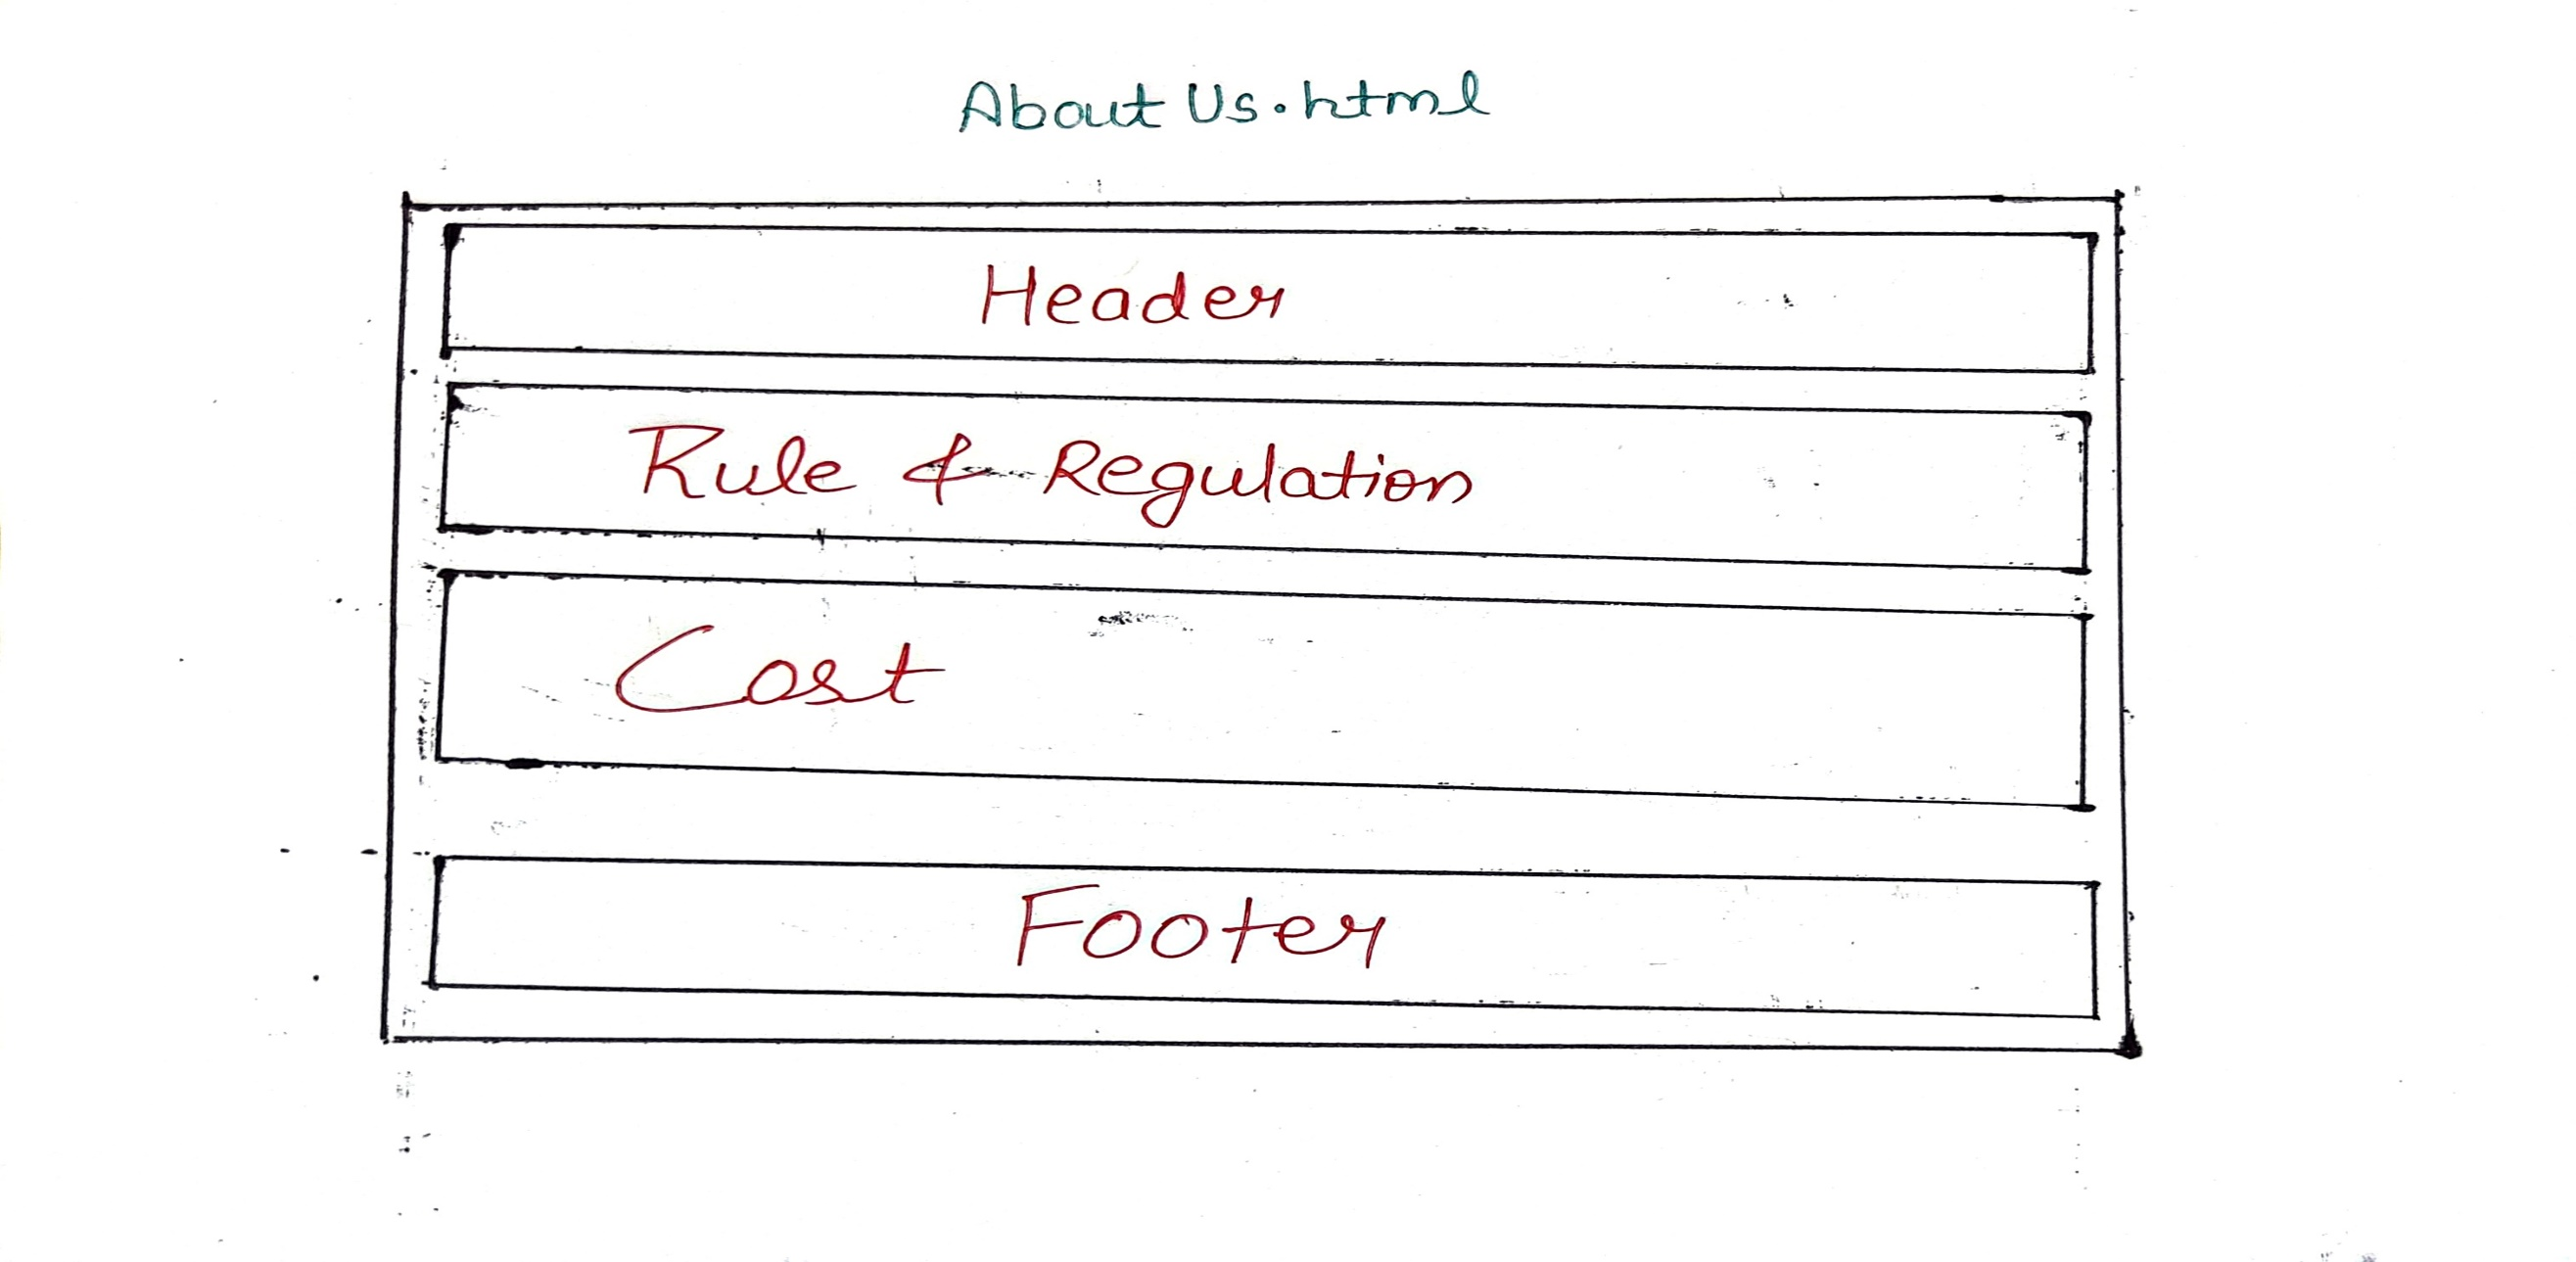 About Us.html
Header
Rule & Regulation
Cost
Footer